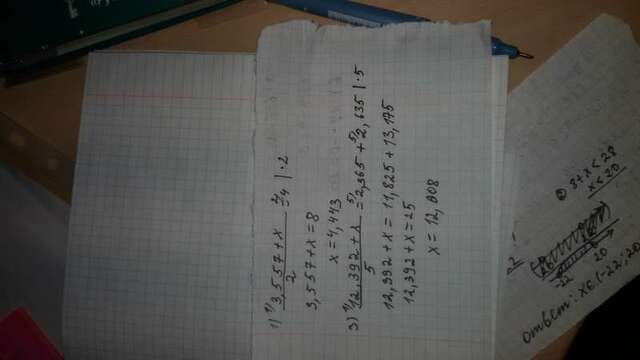 1) 3,557+x / 2 = 4 | · 2
3,557+x=8
x=4,443
3) 12,392+x / 5 = 2,365 + 2,635 | · 5
12,392+x = 11,825 + 13,175
12,392+x=25
x = 12,608
② 8+x<28
x<20
-22 20
ответ: x∈(-22;20